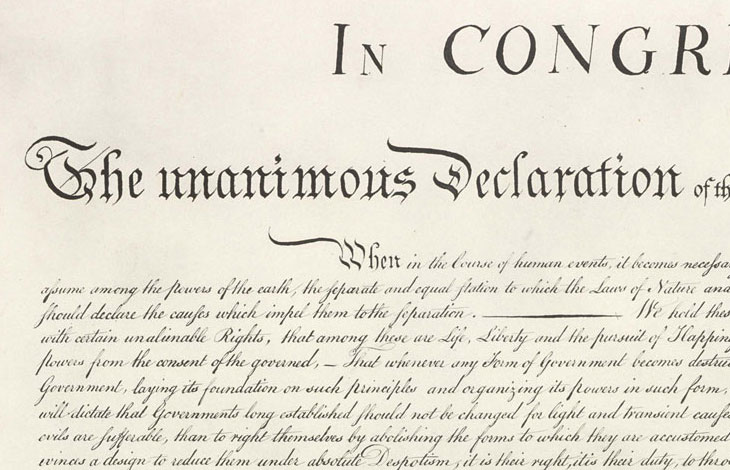 IN CONGR
The unanimous Declaration of th
When in the Course of human events, it becomes necessa
aſsume among the powers of the earth, the separate and equal station to which the Laws of Nature and
should declare the causes which impel them to the separation. ——— We hold thes
with certain unalienable Rights, that among these are Life, Liberty and the pursuit of Happin
powers from the consent of the governed, — That whenever any Form of Government becomes destru
Government, laying its foundation on such principles and organizing its powers in such form,
will dictate that Governments long established should not be changed for light and transient cauſes
evils are sufferable, than to right themselves by abolishing the forms to which they are accustomed
evinces a design to reduce them under absolute Despotism, it is their right, it is their duty, to throw